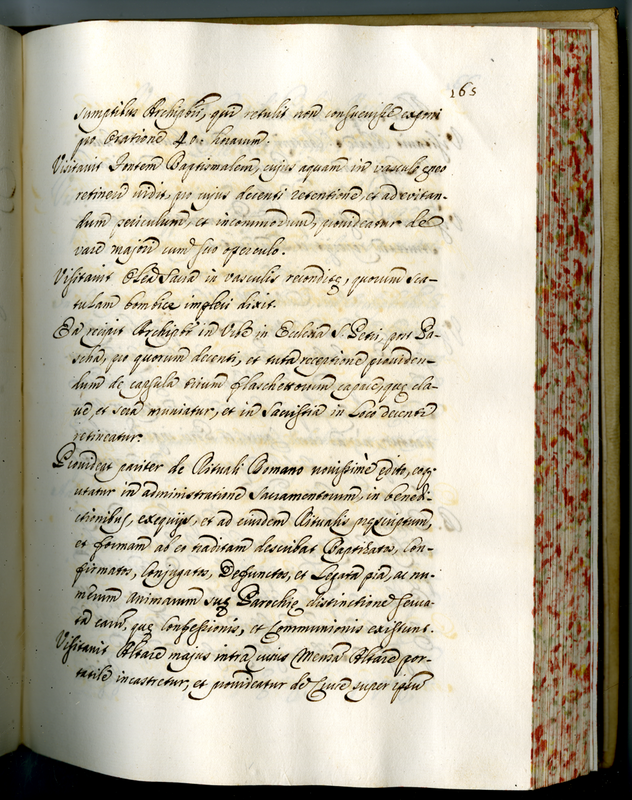 165
sumptibus Archipbri, qui retulit non consuevisse exponi
pro Oratione 40. horarum.
Visitavit Fontem Baptismalem, cujus aquam in vasculo
retineri vidit, pro cujus decenti retentione, et ad evitan-
dum periculum, et incommodum, provideatur de
vase majori cum suo operculo.
Visitavit Olea Sacra in vasculis recondita, quorum sca-
tulam bombice impleri dixit.
Ea recipit Archipbr in Urbe in Ecclesia S. Petri, post Pa-
scha, pro quorum decenti, et tuta receptione providen-
dum de capsula trium flaschettorum capace, quę cla-
ve et sera muniatur, et in Sacristia in loco decenti
retineatur.
Provideat pariter de Rituali Romano novissime edito, eoq;
utatur in administratione Sacramentorum, in benedi-
ctionibus, exequijs, et ad eiusdem Ritualis prescriptum,
et formam ab eo traditam describat Baptizatos, Con-
firmatos, Conjugatos, Defunctos, et Legata pia, ac nu-
merum Animarum suę Parochię distinctione
earum, quę Confessionis, et Communionis existunt.
Visitavit Altare majus intra cujus Mensa Altare por-
tatile incastretur, et provideatur de super ipsum